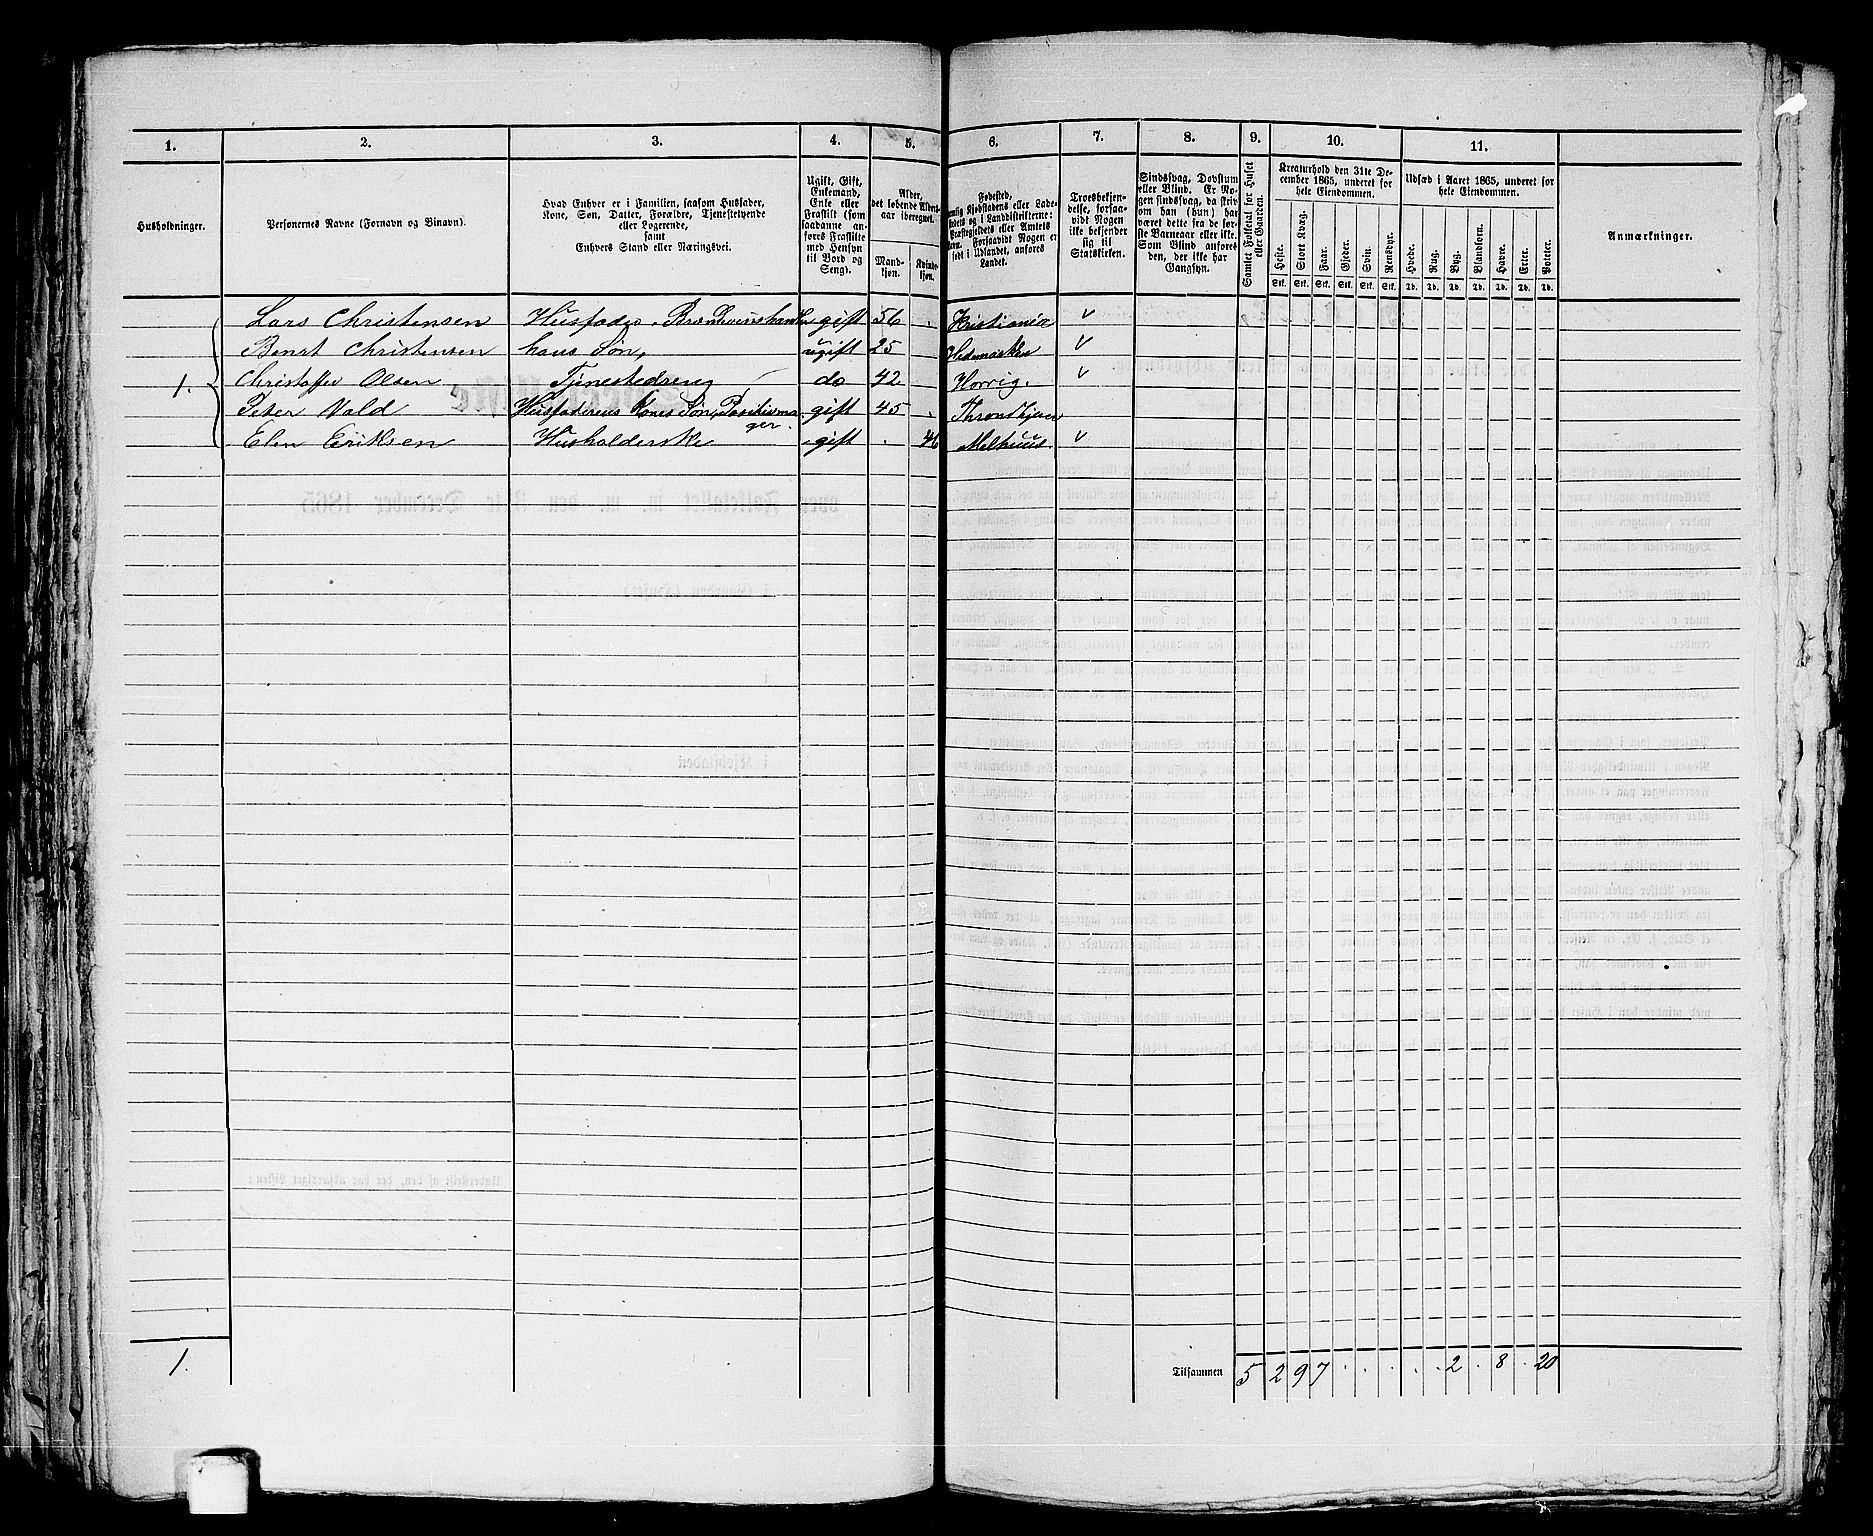 1. 2. 3. 4. 5. 6. 7. 8. 9. 10. 11.
Husholdninger.
Personernes Navne (Fornavn og Binavn).
Hvad Enhver er i Familien, saasom Husfader,
Kone, Søn, Datter, Forældre, Tjenestetyende
eller Logerende,
samt
Enhvers Stand eller Næringsvei.
Ugift, Gift,
Enkemand,
Enke eller
Fraskilt (som
saadanne an-
føres Fraskilte
med Hensyn
til Bord og
Seng).
Alder,
det løbende Alders-
aar iberegnet.
Mand-
kjøn.
Kvinde-
kjøn.
Fødested,
Nogen er
født i Udlandet, anføres
Landet.
Troesbekjen-
delse, forsaa-
vidt Nogen
ikke bekjender
sig til
Statskirken.
Sindssvag, Døvstum
eller Blind. Er No-
gen sindssvag, da skriv
om han (hun) har
været dette fra de før-
ste Barneaar eller ikke.
Som Blind anføres
den, der ikke har
Gangsyn.
Samlet Folketal for Huset
eller Gaarden.
Kreaturhold den 31te De-
cember 1865, underet for
hele Eiendommen.
Heste. Stort Kvæg. Faar. Gjeder. Svin. Rensdyr.
Stk. Stk. Stk. Stk. Stk. Stk.
Udsæd i Aaret 1865, underet for
hele Eiendommen.
Hvede. Rug. Byg. Blandkorn. Havre. Erter. Poteter.
Td. Td. Td. Td. Td. Td. Td.
Anmærkninger.
Lars Christensen Husfader, gift 56 . Kristiania
Christensen hans Søn, ugift 25 Hedemarken
1. Christoffer Olsen do 42 .
Peter Vald Husfaderens Kones Søn, gift 45 . Throndhjem
Elen Eriksen Husholderske gift . 46 Melhuus
1. Tilsammen 5 2 9 7 . . . . . 2 . 8 . 20